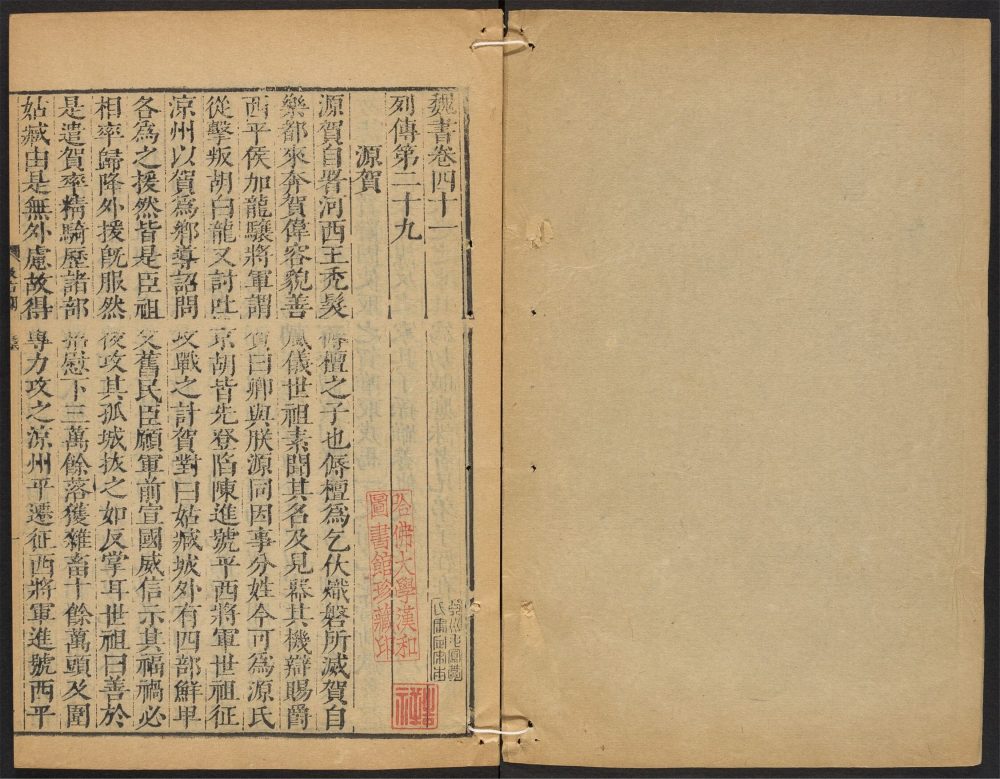 魏書卷四十一
列傳第二十九
源賀
源賀自署河西王禿髮傉檀之子也傉檀爲乞伏熾磐所滅賀自
樂都來奔賀偉容貌善風儀世祖素聞其名及見器其機辯賜爵
西平侯加龍驤將軍謂賀曰卿與朕源同因事分姓今可爲源氏
從擊叛胡白龍又討吐京胡皆先登陷陳進號平西將軍世祖征
涼州以賀爲鄉導詔問攻戰之計賀對曰姑臧城外有四部鮮卑
各爲之援然皆是臣祖父舊民臣願軍前宣國威信示其福禍必
相率歸降外援旣服然後攻其孤城拔之如反掌耳世祖曰善於
是遣賀率精騎歷諸部招慰下三萬餘落獲雜畜十餘萬頭及圍
姑臧由是無外慮故得專力攻之涼州平遷征西將軍進號西平
哈佛大學漢和
圖書館珍藏印